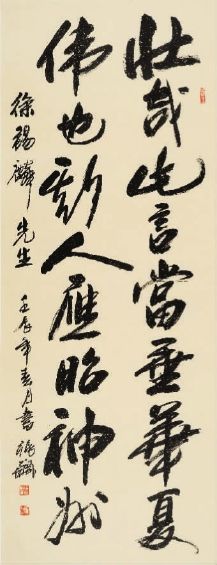 壮哉此言當垂華夏
伟也斯人應昭神州
徐锡麟先生
壬辰年春月書